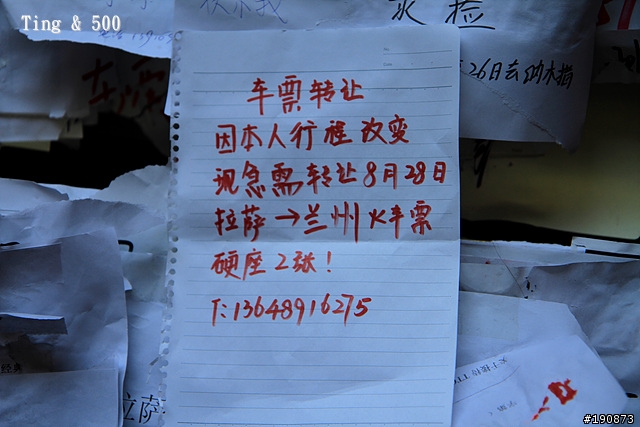 Ting & 500
水检
26日去纳木措
车票转让
因本人行程改变
现急需转让8月28日
拉萨→兰州火车票
硬座2张!
T:13648916275
拉萨
#190873